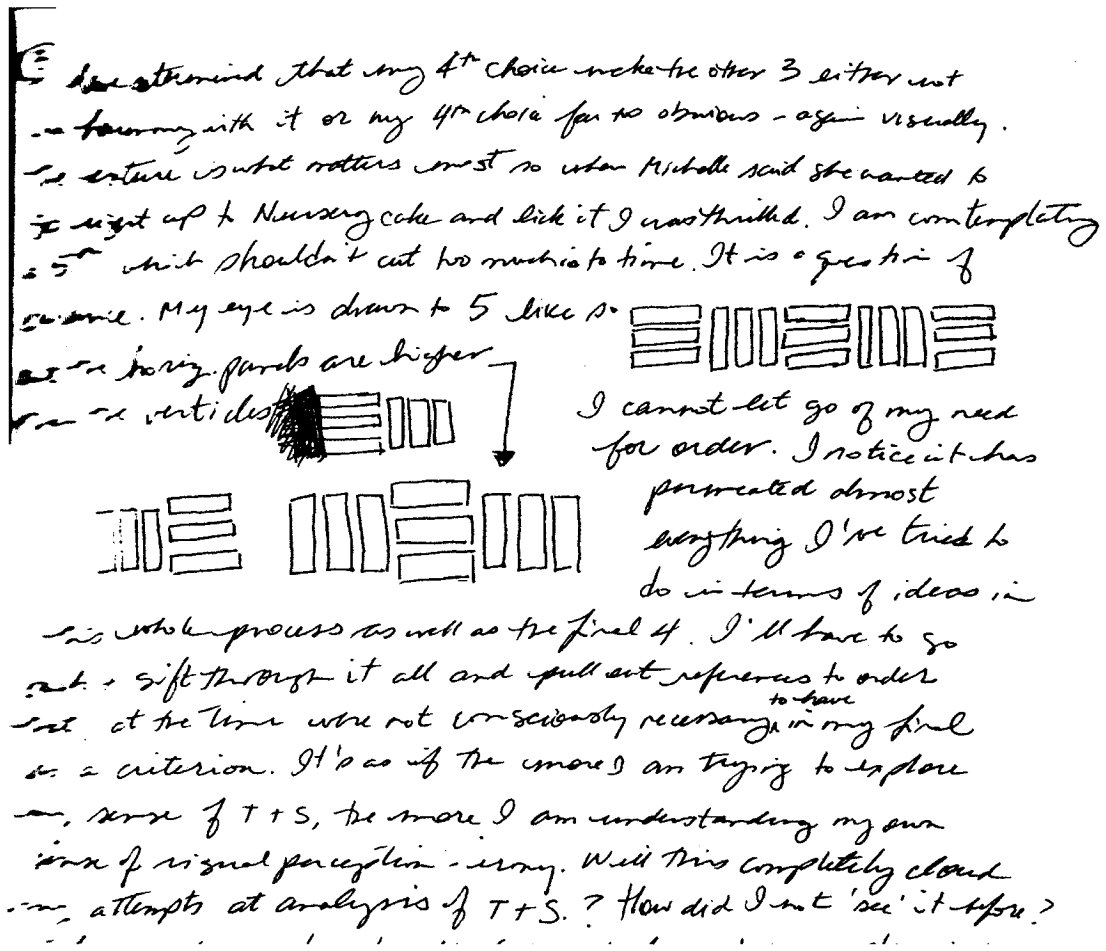 that my 4th choice make the other 3 either not
with it or my 4th choice far too obvious - again visually.
is what matters most so when Michelle said she wanted to
right up to Nursery cake and lick it I was thrilled. I am comtemplating
5th which shouldn't cut too much into time. It is a question of
My eye is drawn to 5 like so
horiz. panels are higher
verticles
I cannot let go of my need
for order. I notice it has
permeated almost
everything I've tried to
do in terms of ideas in
this whole process as well as the final 4. I'll have to go
sift through it all and pull out references to order
that at the time were not consciously necessary to have in my final
as a criterion. It's as if the more I am trying to explore
sense of T+S, the more I am understanding my own
sense of visual perception - irony. Will this completely cloud
attempts at analysis of T+S.? How did I not 'see' it before?